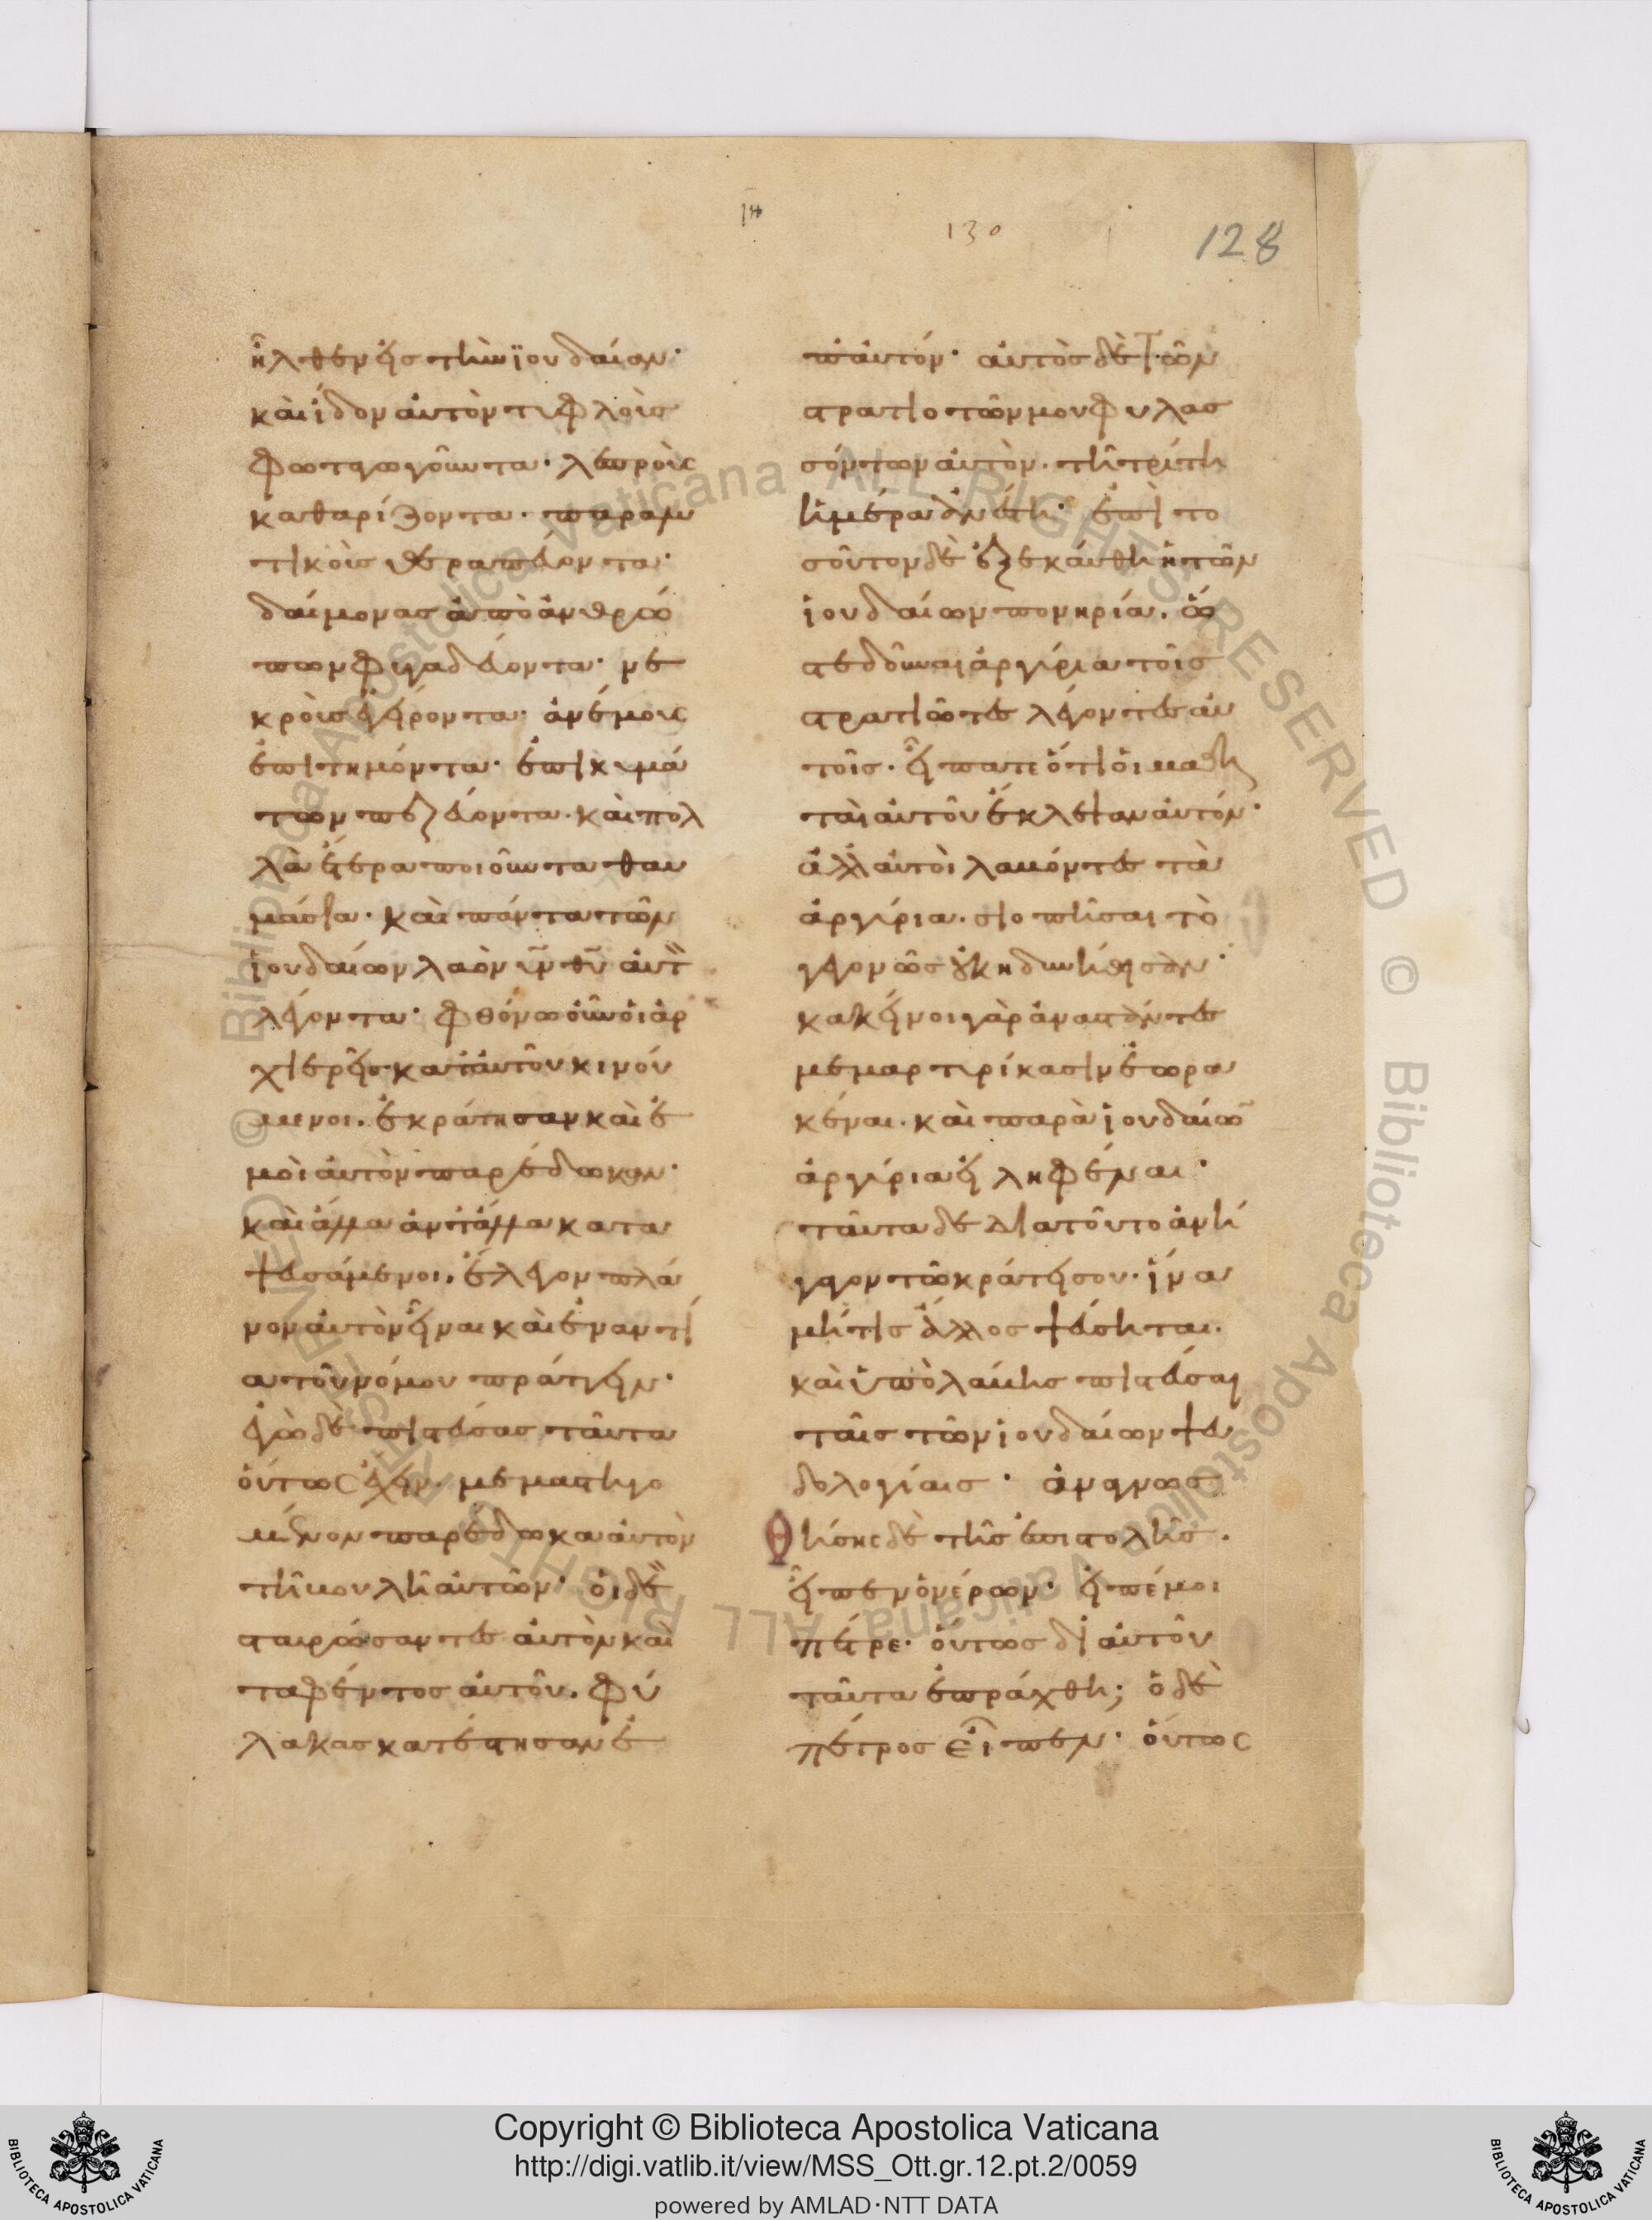 130
128
ἦλθεν εἰς τὴν ϊουδαίαν·
καὶ ἴδον αὐτὸν τυφλοὺς
φωταγωγοῦντα· λεπροὺς
καθαρίζοντα· παραλυ
τικοὺς θεραπεύοντα·
δαίμονας ἀπὸ ἀνθρώ
πων φυγαδεύοντα· νε
κροὺς ἐγείροντα· ἀνέμοις
ἐπιτημόντα· ἐπι κυμά
των πεζεύοντα· καὶ πολ
λὰ ἕτερα ποιοῦντα θαυ
μάσια· καὶ πάντα τῶν
ἰουδαίων λαὸν υν θυ αυτ
λέγοντα· φθόνω οὖν οἱ ἀρ
χιερεῖς κατ' αὐτοῦ κινού
μενοι. ἐκράτησαν καὶ ἐ
μοὶ αὐτὸν παρέδωκαν·
καὶ ἄλλα ἀντ' ἄλλα κατα
ψευσάμενοι. ἔλεγον πλά
νον αὐτὸν εἶναι καὶ ἐναντί
α τοῦ νόμου πράττειν·
ἐγὼ δὲ πιστεύσας ταῦτα
οὕτως ἔχειν. μεμαστιγο
μένον παρέδωκα αὐτὸν
τῇ βουλῇ αὐτῶν· οἱ δὲ
σταυρώσαντες αὐτὸν καὶ
ταφέντος αὐτοῦ. φύ
λακας κατέστησαν ἐ
π' αὐτόν· αὐτὸς δὲ τῶν
στρατιοτῶν μου φυλασ
σόντων αὐτὸν. τῇ τρίτη
ἡμέρα ἀνέστη· ἐπὶ το
σοῦτον δὲ ἐξεκαύθη ἡ τῶν
ἰουδαίων πονηρία. ὥ
στε δοῦναι ἀργύρια τοῖς
στρατιῶτες λέγοντες αὐ
τοῖς. εἴπατε ὅτι οἱ μαθη
ταὶ αὐτοῦ ἔκλεψαν αὐτόν·
ἀλλ' αὐτοὶ λαβόντες τὰ
ἀργύρια. σιοπῆσαι τὸ
γεγονὼς οὐκ ηδυνήθησαν·
κακείνοι γὰρ ἀναστάντες
μεμαρτυρίκασιν ἑωρα
κέναι. καὶ παρὰ ἰουδαίω̄
ἀργύρια εἰληφέναι·
ταῦτα δε διατοῦτο ἀνή
γαγον τῶ κράτει σου. ἵνα
μήτις ἄλλος ψεύσηται.
καὶ ὑπολάβης πιστεύσαι
ταῖς τῶν ἰουδαίων ψευ
δολογίαις· ἀναγνωσ
Θήσης δὲ τῆς ἐπιστολῆς.
εἶπεν ὁ νέρων· εἰπέ μοι
πέτρε. οὕτως δι' αὐτοῦ
ταῦτα ἐπράχθη; ὁ δὲ
πέτρος εἶπεν· οὕτως
Copyright © Biblioteca Apostolica Vaticana
http://digi.vatlib.it/view/MSS_Ott.gr.12.pt.2/0059
powered by AMLAD·NTT DATA